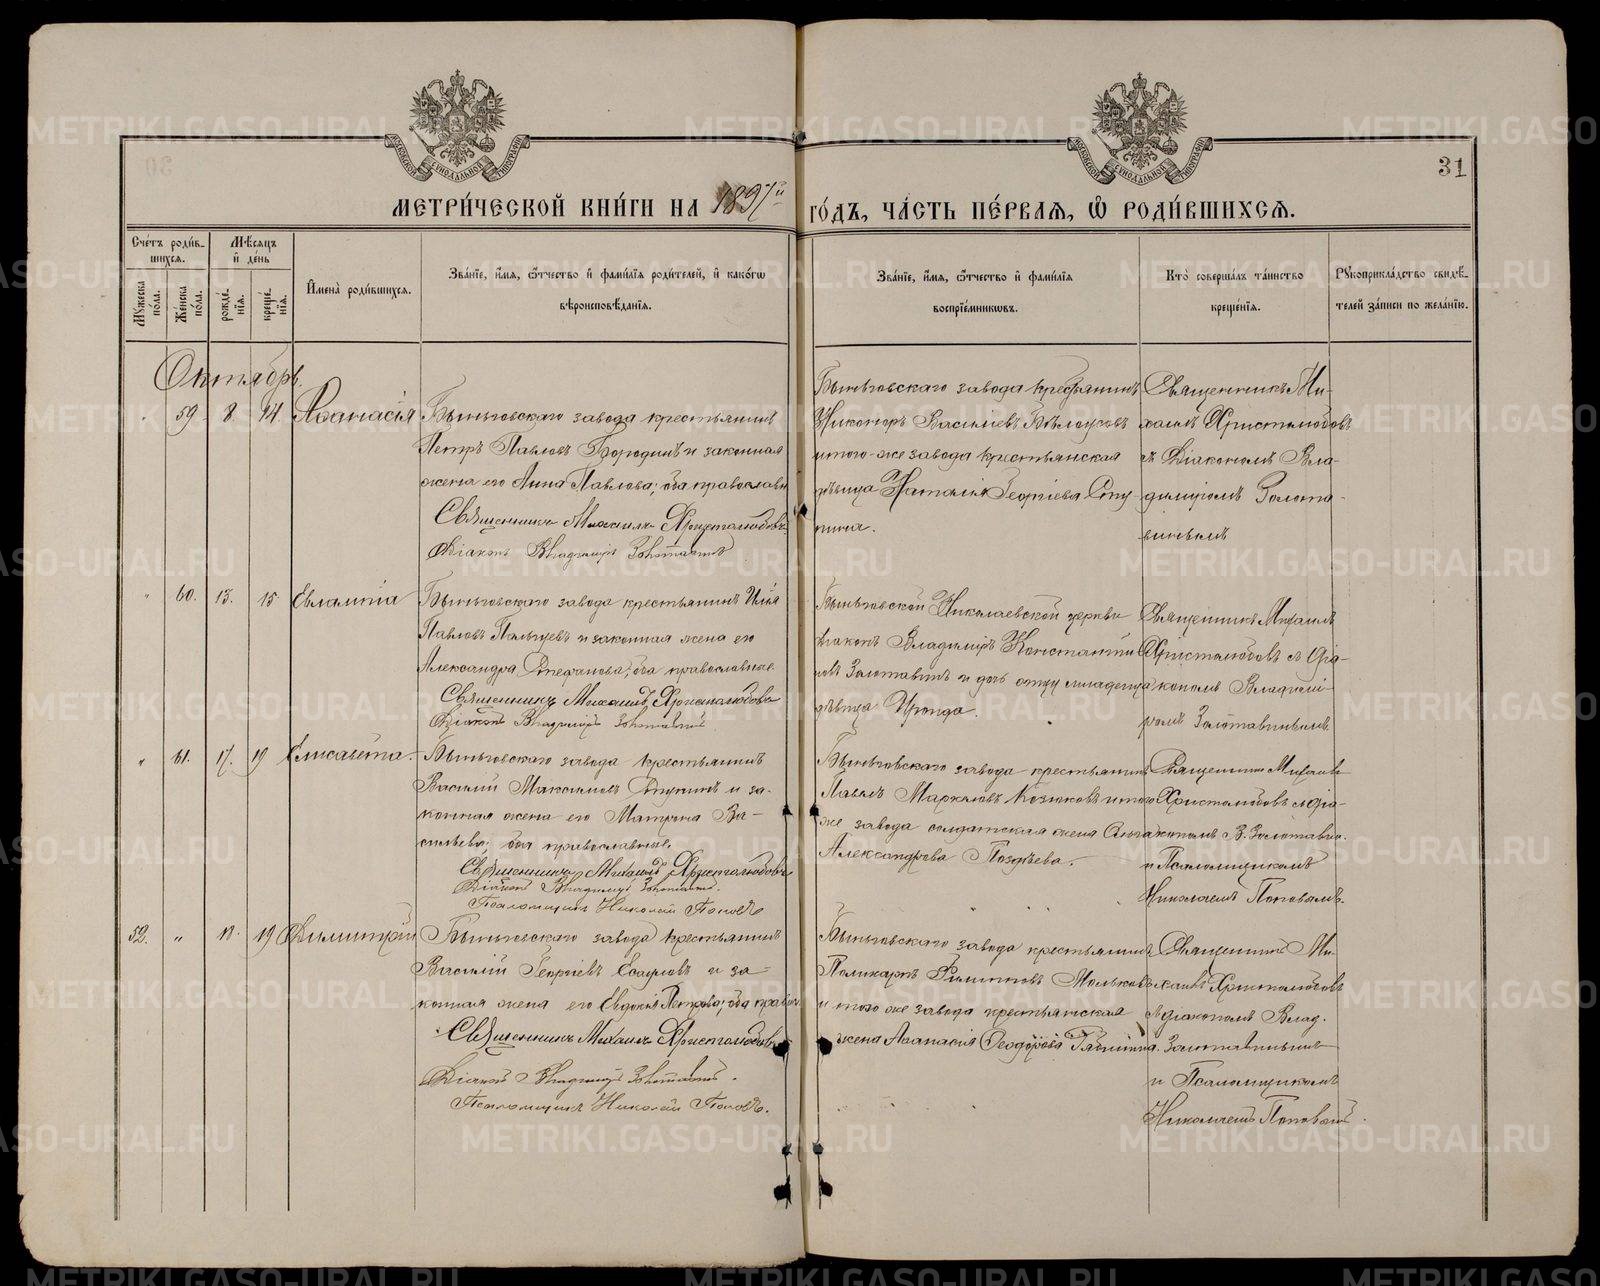 31
МЕТРИ́ЧЕСКОЙ КНИ́ГИ НА 1897й ГО́ДЪ, ЧА́СТЬ ПЕ́РВАѦ, Ѽ РОДИ́ВШИХСѦ.
Сче́тъ роди́в-
шихсѧ.
Мѹ́жеска по́ла.
Же́нска по́ла.
Мѣ́сѧцъ
и҆ де́нь
рожде́-
нїѧ.
креще́-
нїѧ.
И҆мена̀ роди́вшихсѧ.
Зва́нїе, и҆́мѧ, ѻ҆́тчество и҆ фами́лїѧ роди́телей, и҆ како́гѡ
вѣроисповѣ́данїѧ.
Зва́нїе, и҆́мѧ, ѻ҆́тчество и҆ фами́лїѧ
воспрїе́мникѡвъ.
Кто̀ соверша́лъ та́инство
креще́нїѧ.
Рѹкоприкла́дство свидѣ́-
телей за́писи по жела́нїю.
Октябрь.
59 8 14 Аѳанасія
Быньговскаго завода крестьянинъ
Петръ Павловъ Бородинъ и законная
жена его Анна Павлова; оба православн
Священникъ Михаилъ Христолюбовъ
Діаконъ Владиміръ Золотавинъ
Быньговскаго завода крестьянинъ
Никаноръ Василіевъ Бѣлоусовъ
и того-же завода крестьянская
дѣвица Наталія Георгіева Сту-
пина.
Священникъ Ми-
хаилъ Христолюбовъ
съ Діакономъ Вла-
диміромъ Золота-
винымъ
" 60. 13. 15 Евлампія
Быньговскаго завода крестьянинъ Илія
Павловъ Пальцевъ и законная жена его
Александра Стефанова; оба православные.
Священникъ Михаилъ Христолюбовъ
Діаконъ Владиміръ Золотавинъ
Быньговской Николаевской церкви
діаконъ Владиміръ Константи-
новъ Золотавинъ и дочь отцу младенца
дѣвица Ираида.
Священникъ Михаилъ
Христолюбовъ съ Діа-
кономъ Владимі-
ромъ Золотавинымъ
" 61. 17. 19 Елисавета.
Быньговскаго завода крестьянинъ
Василій Максимовъ Ступинъ и за-
конная жена его Матрона Ва-
сильева; оба православные.
Священникъ Михаилъ Христолюбовъ
Діаконъ Владиміръ Золотавинъ.
Псаломщикъ Николай Поповъ
Быньговскаго завода крестьянинъ
Павелъ Маркеловъ Козюковъ и того
же завода солдатская жена Ольга
Александрова Поздѣева.
Священникъ Михаилъ
Христолюбовъ съ діа-
кономъ В. Золотавин.
и Псаломщикомъ
Николаемъ Поповымъ.
52. " 18. 19 Димитрій
Быньговскаго завода крестьянинъ
Василій Георгіевъ Есауловъ и за-
конная жена его Евдокія Петрова; оба прав
Священникъ Михаилъ Христолюбовъ
Діаконъ Владиміръ Золотавинъ.
Псаломщикъ Николай Поповъ.
Быньговскаго завода крестьянинъ
Поликарпъ Филипповъ Мальковъ
и того же завода крестьянская
жена Аѳанасія Ѳеодорова
Священникъ Ми-
хаилъ Христолюбовъ
съ діакономъ Влад.
Золотавинымъ
и Псаломщикомъ
Николаемъ Поповымъ.
METRIKI.GASO-URAL.RU